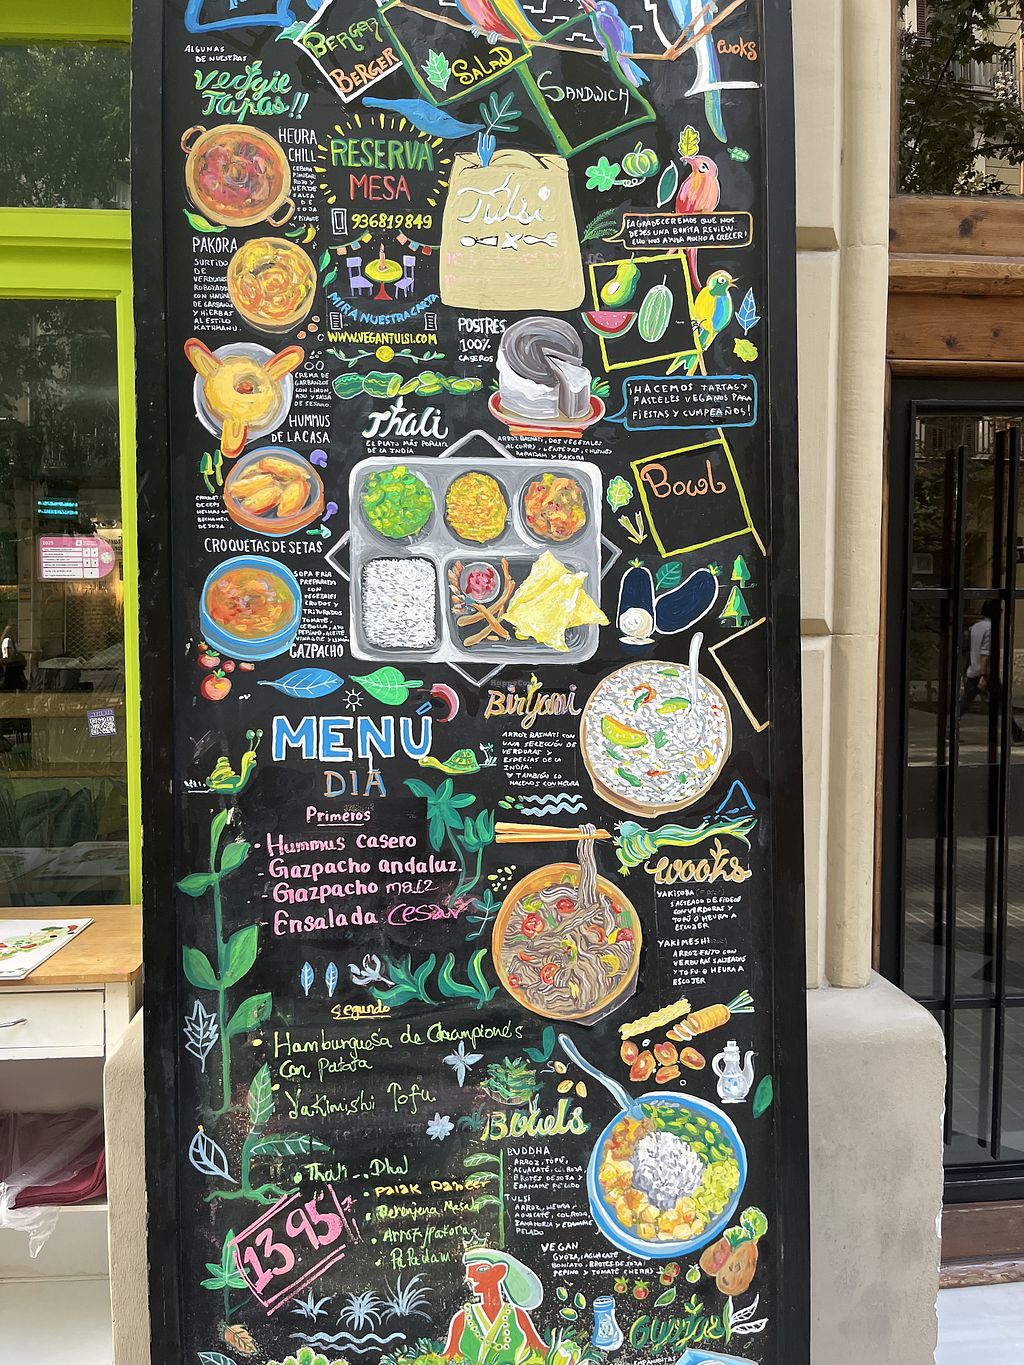 BERGER
BERGER
SALAD
SANDWICH
WOKS
ALGUNAS
DE NUESTRAS
Veggie
Tapas!!
HEURA
CHILI
CEBOLLA
PIMIENTO
ROJO Y
VERDE
SALSA
DE
SOJA
Y PICANTE
RESERVA
MESA
936819849
MIRA NUESTRA CARTA
WWW.VEGANTULSI.COM
Tulsi
¡AGRADECEREMOS QUE NOS
DEJES UNA BONITA REVIEW.
ELLO NOS AYUDA MUCHO A CRECER!
PAKORA
SURTIDO
DE
VERDURAS
REBOZADAS
CON HARINA
DE GARBANZO
Y HIERBAS
AL ESTILO
KATHMANDU.
POSTRES
100%
CASEROS
¡HACEMOS TARTAS Y
PASTELES VEGANOS PARA
FIESTAS Y CUMPEAÑOS!
CREMA DE
GARBANZOS
CON LIMON,
AJO Y SALSA
DE SESAMO.
HUMMUS
DE LA CASA
Thali
EL PLATO MÁS POPULAR
DE LA INDIA
ARROZ BASMATI, DOS VEGETALES
AL CURRY, LENTEJAS, CHUTNEY
PAPADAM Y PAKORA
Bowl
CROQUETAS DE SETAS
SOPA FRIA
PREPARADO
CON
VEGETALES
CRUDOS Y
TRITURADOS
TOMATE,
CEBOLLA, AJO
PEPINO, ACEITE
VINAGRE Y LIMON
GAZPACHO
MENÚ
DIA
Primeros
· Hummus casero
- Gazpacho andaluz.
- Gazpacho maiz
- Ensalada Cesar
Segundo
Hamburguesa de Championes
Con Patata
Yakimishi Tofu
Thali... Dhal
Palak Paneer
Berenjena Masala
Arroz/Pakora
Papadam
13'95
Biriyani
ARROZ BASMATI CON
UNA SELECCIÓN DE
VERDURAS Y
ESPECIAS DE LA
INDIA.
Y TAMBIÉN LO
HACEMOS CON HEURA
Wooks
YAKISOBA
SALTEADO DE FIDEOS
CON VERDURAS Y
TOFÚ O HEURA A
ESCOJER
YAKIMESHI
ARROZ FRITO CON
VERDURAS SALTEADAS
Y TOFU O HEURA A
ESCOJER
Bowls
BUDDHA
ARROZ, TOFÚ,
AGUACATE, COL ROJA,
BROTES DE SOJA Y
EDAMAME PELADO
TULSI
ARROZ, HEURA,
AGUACATE, COL ROJA,
ZANAHORIA Y EDAMAME
PELADO
VEGAN
GYOZA, AGUACATE
BONIATO, BROTES DE SOJA,
PEPINO Y TOMATE CHERRY
Gyozas
2025
HappyCow